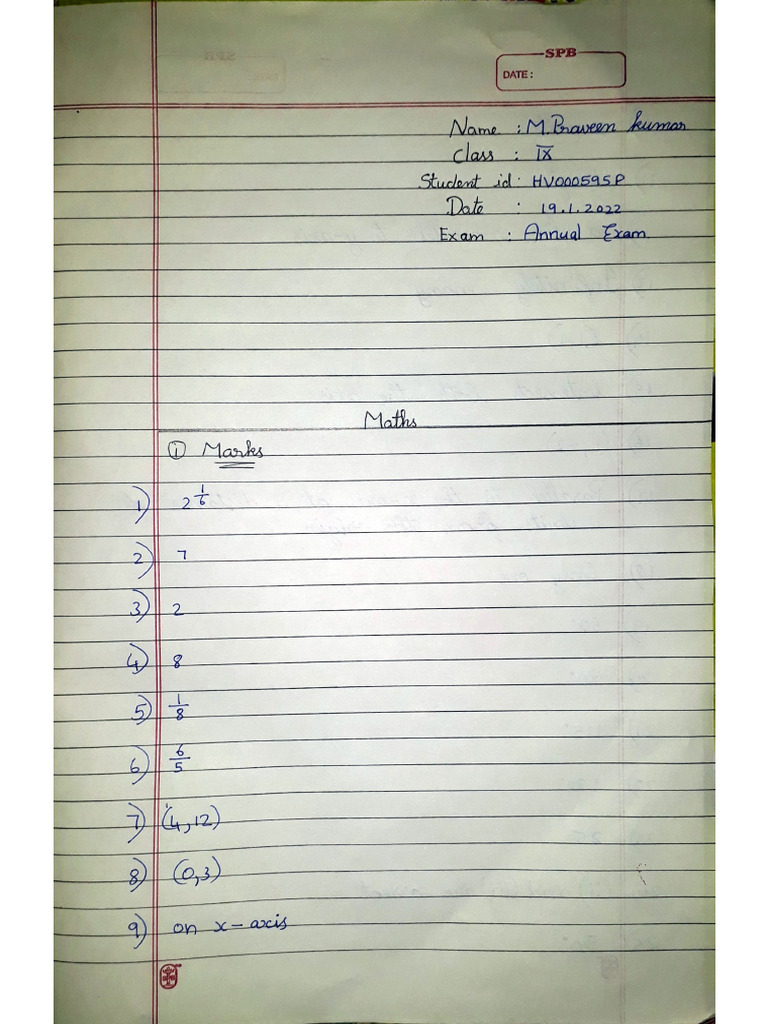 SPB
DATE:
Name : M. Praveen kumar
Class : IX
Student id: HV000595P
Date : 19.1.2022
Exam : Annual Exam
Maths
① Marks
1) 2^(1/6)
2) 7
3) 2
4) 8
5) 1/8
6) 6/5
7) (4,12)
8) (0,3)
9) on x-axis